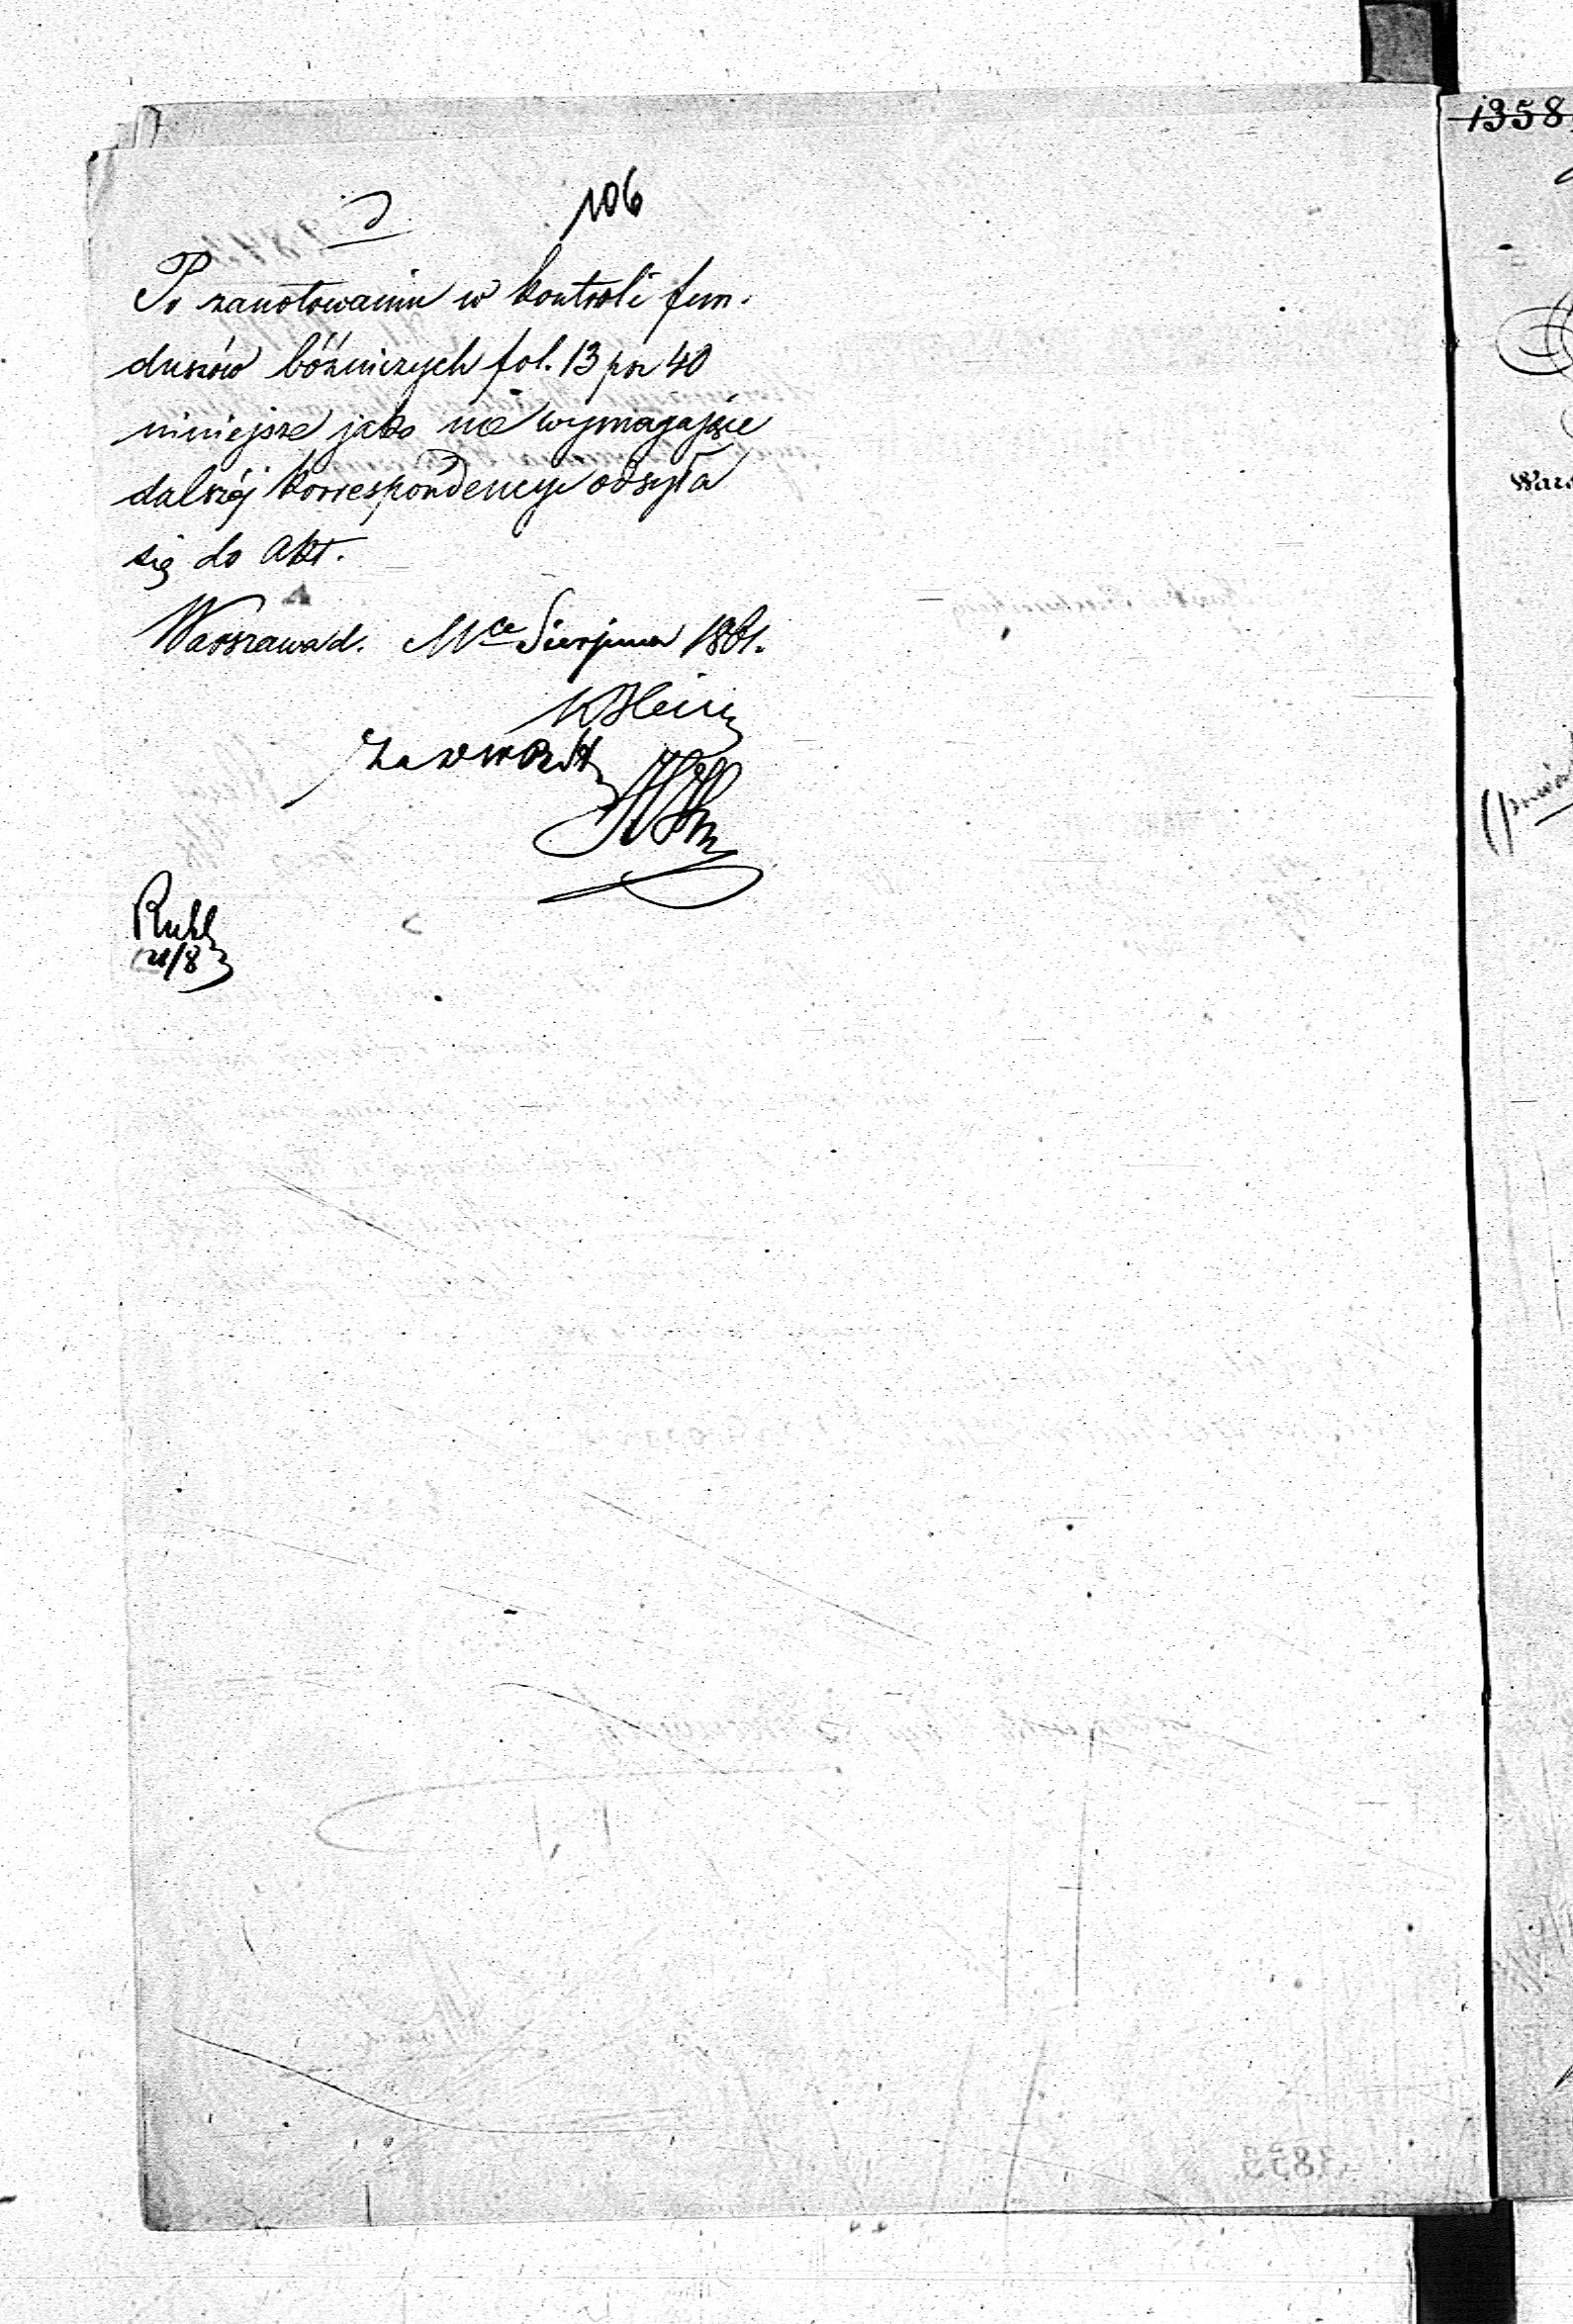 106
Po zanotowaniu w kontroli fun-
duszów bóżniczych fol. 13 poz 40
niniejsze jako nie wymagające
dalszéj korrespondencyi odsyła
się do Akt.
Warszawa d. Mca Sierpnia 1861.
Ruhl
21/8
1358
Wars